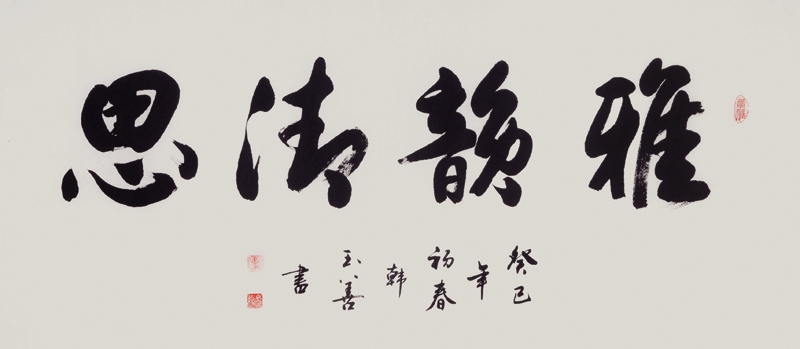 雅韵清思
癸巳
年
初春
韩
玉善
書